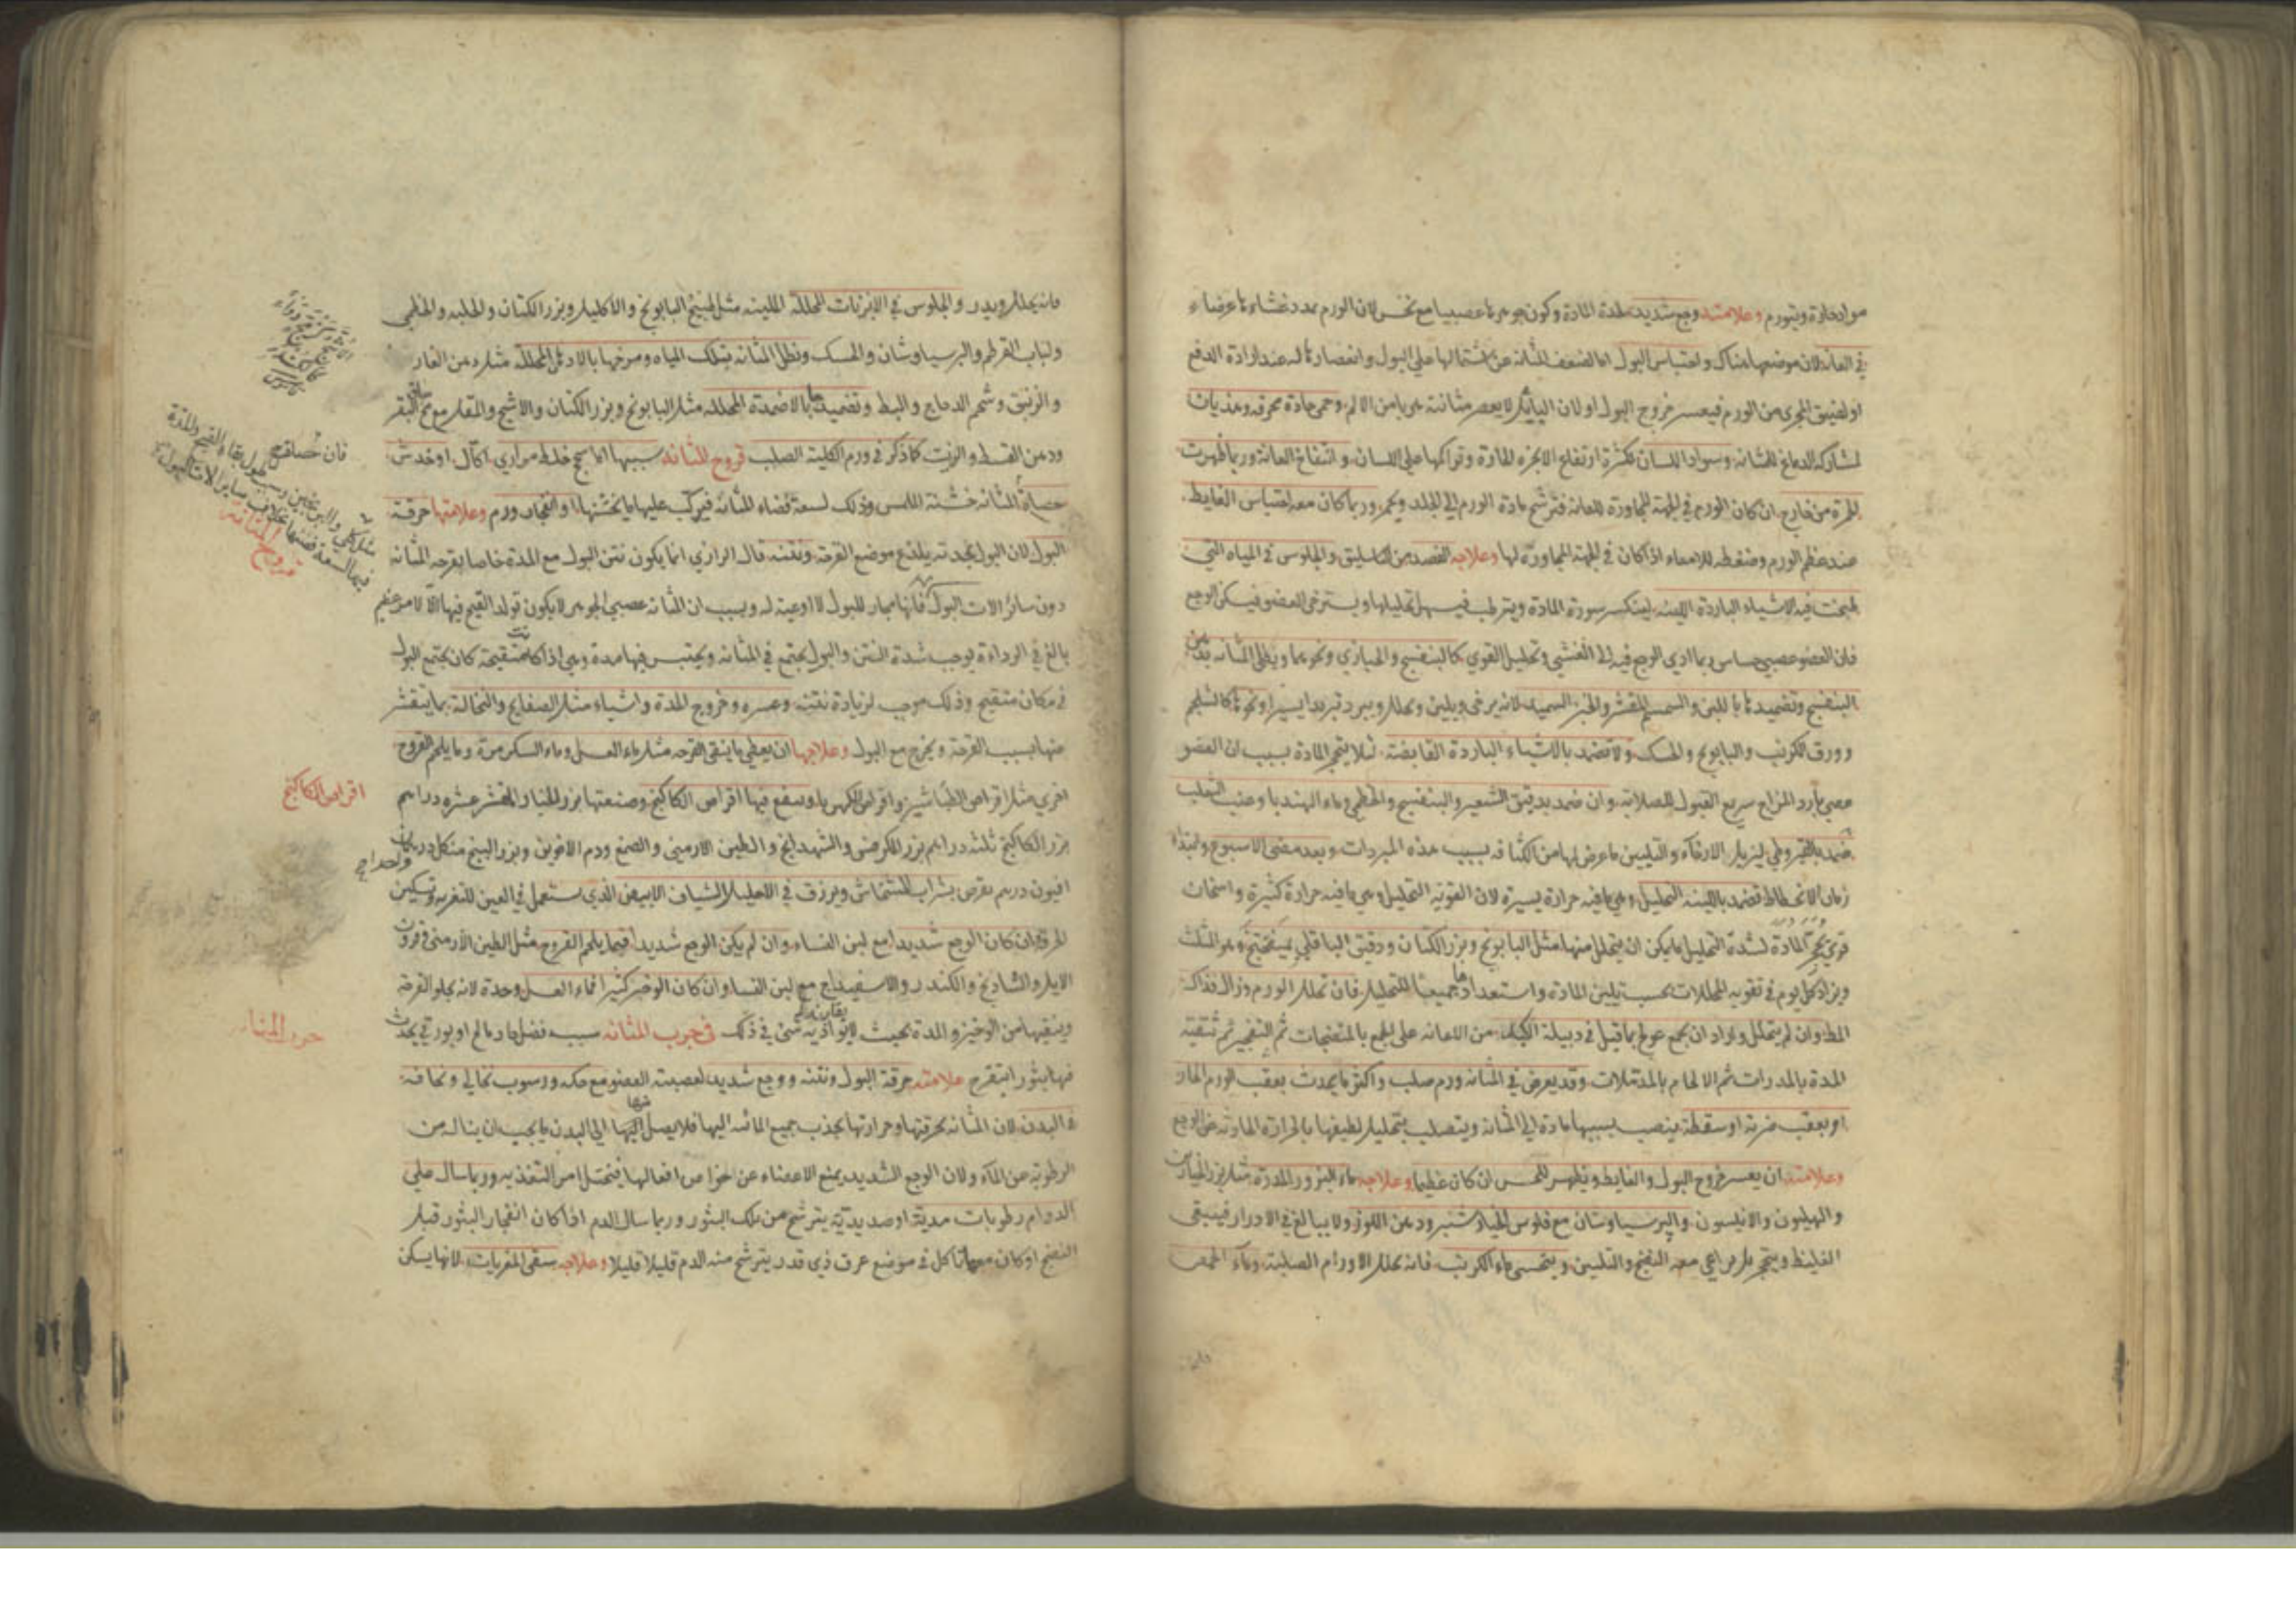 مواد حارة ويتورم وعلامته وجع شديد لحدة المادة وكون جوهرها عصبيا مع نخس لان الورم يمدد غشاءها عرضا
في العانة لان موضعها هناك واحتباس البول اما لضعف المثانة عن اشتمالها على البول وانعصارها له عند ارادة الدفع
او لضيق المجرى من الورم فيعسر خروج البول او لان لا يعصر مثانته هربا من الالم وحمى حادة محرقة وهذيان
لمشاركة الدماغ للمثانة وسواد اللسان لكثرة ارتفاع الابخرة الحارة وتراكمها على اللسان وانتفاخ العانة وربما ظهرت
الحمرة من خارج ان كان الورم في الجهة المجاورة للعانة فترشح مادة الورم الى الجلد ويحمر وربما كان معه احتباس الغايط
عند عظم الورم وضغطه للامعاء اذا كان في الجهة المجاورة لها وعلاجه الفصد من الباسليق والجلوس في المياه التي
طبخت فيه الاشياء الباردة اللينة لينكسر سورة المادة ويترطب فيسهل تحليلها ويسترخى العضو فيسكن الوجع
فان العضو عصبي حساس ربما ادي الوجع فيه الى الغشي وتحليل القوي كالبنفسج والخبازي ونحوهما ويطلى المثانة بدهن
البنفسج وتضميدها باللبن والسمسم المقشر والخبز السميد لانه يرخى ويلين ويحلل ويبرد تبريدا يسيرا ونحوها كالشلجم
وورق الكرنب والبابونج والحسك ولا تضمد بالاشياء الباردة القابضة لئلا يتحجر المادة بسبب ان العضو
عصبي بارد المزاج سريع القبول للصلابة وان ضمد بدقيق الشعير والبنفسج والخطمي وماء الهندبا وعنب الثعلب
ضمد بالقيروطي ليزيل الارخاء والتليين ما عرض لها من الكثافة بسبب هذه المبردات وبعد مضى الاسبوع وابتداء
زمان الانحطاط فضمد باللينة التحليل وهي ما فيه حرارة يسيرة لان القوية التحليل وهي ما فيه حرارة كثيرة واسخان
قوي يحجر المادة لشدة التحليل ما يمكن ان يتحلل منها مثل البابونج وبزر الكتان ودقيق الباقلي بميفختج وهو المثلث
ويزاد كل يوم في تقوية المحللات بحسب تليين المادة واستعدادها جميعا للتحليل فان تحلل الورم وزال فذاك
المط وان لم يتحلل واراد ان يجمع عولج بما قيل في دبيلة الكبد من الاعانة على الجمع بالمنضجات ثم التفجير ثم تنقية
المدة بالمدرات ثم الالحام بالمدملات وقد يعرض في المثانة ورم صلب واكثر ما يحدث بعقب الورم الحار
او بعقب ضربة او سقطة ينصب بسببها مادة الى المثانة ويتصلب بتحليل لطيفها بالحرارة الحادثة عن الوجع
وعلامته ان يعسر خروج البول والغايط ويظهر للحس ان كان عظيما وعلاجه ماء البزور المدرة مثل بزر الخيارين
والهليون والانيسون والبرسياوشان مع فلوس الخيارشنبر ودهن اللوز ولا يبالغ في الادرار فيبقى
الغليظ ويتحجر بل يراعي معه النضج والتليين ويتحسى ماء الكرنب فانه يحلل الاورام الصلبة وماء الحمص
فانه
فانه يحلل ويدر والجلوس في الابزنات المحللة الملينة مثل طبيخ البابونج والاكليل وبزر الكتان والحلبة والخطمي
ولباب القرطم والبرسياوشان والحسك ونطل المثانة بتلك المياه ومرخها بالادهان المحللة مثل دهن الغار
والزنبق وشحم الدجاج والبط وتضميدها بالاضمدة المحللة مثل البابونج وبزر الكتان والاشج والمقل مع مخ ساق البقر
ودهن القسط والزيت كما ذكر في ورم الكلية الصلب قروح المثانة سببها اما سحج خلط مراري اكال او خدش
حصاة المثانة خشنة اللمس وذلك لسعة فضاء المثانة فيركب عليها ما يخشنها او انفجار ورم وعلامتها حرقة
البول لان البول بحدته يلذع موضع القرحة ونتنه قال الرازي انما يكون نتن البول مع المدة خاصا بقرحة المثانة
دون سائر الات البول فانها مجار للبول لا اوعية له وبسبب ان المثانة عصبي الجوهر لا يكون تولد القيح فيها الا لامر عظيم
بالغ في الرداءة يوجب شدة النتن والبول يجتمع في المثانة ويحتبس فيها مدة وهي اذا كانت متقيحة كان يجتمع البول
في مكان متقيح وذلك موجب لزيادة نتنه وعسره وخروج المدة واشياء مثل الصفايح والنخالة بما يتقشر
منها بسبب القرحة ويخرج مع البول وعلاجها ان يعطى ما ينقى القرحة مثل ماء العسل وماء السكر مرة وما يلحم القروح
اخري مثل اقراص الطباشير واقراص الكهربا وينفع فيها اقراص الكاكنج وصنعتها بزر الخيار المقشر عشرة دراهم
بزر الكاكنج ثلثة دراهم بزر الكرفس والشهدانج والطين الارمني والصمغ ودم الاخوين وبزر البنج من كل درهمان
افيون درهم يقرص بشراب الخشخاش ويزرق في الاحليل الشياف الابيض الذي يستعمل في العين للتغرية وتسكين
الحرقة ان كان الوجع شديدا مع لبن النساء وان لم يكن الوجع شديدا فبما يلحم القروح مثل الطين الارمني وقرون
الايل والشادنج والكندر والاسفيداج مع لبن النسا وان كان الوضر كثيرا فماء العسل وحده لانه يجلو القرحة
وينقيها من الوضر والمدة بحيث لا يوازيه شئ في ذلك في جرب المثانة سببه فضل حار مالح او بورقي يحدث
فيها بثورا يتقرح علامته حرقة البول ونتنه ووجع شديد لعصبية العضو مع حكة ورسوب نخالي ونحافة
في البدن لان المثانة بحرقتها وحرارتها يجذب جميع المائية اليها فلا يصل منها الى البدن ما يجب ان يناله من
الرطوبة من الماء ولان الوجع الشديد يمنع الاعضاء عن خواص افعالها فيختل امر التغذية وربما سال على
الدوام رطوبات مدية او صديدية يترشح من تلك البثور وربما سال الدم اذا كان انفجار البثور قبل
النضج او كان معها تاكل في موضع عرق ذي قدر يترشح منه الدم قليلا قليلا وعلاجه سقى المغريات لانها يسكن
قروح المثانة
اقراص الكاكنج
جرب المثانة